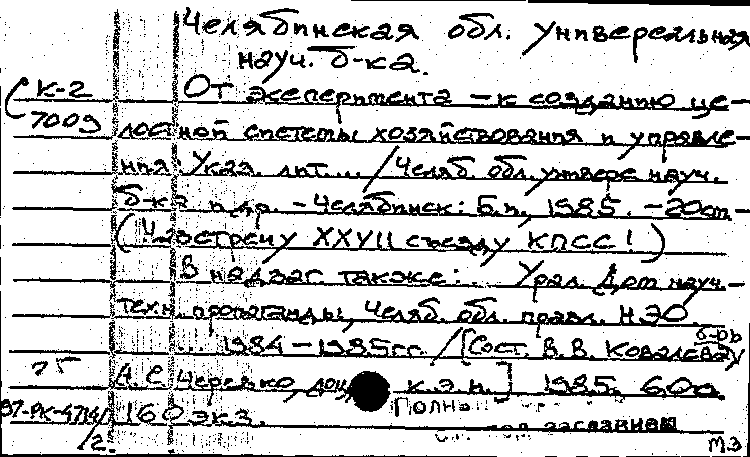 Челябинская обл. универсальная
науч. б-ка.
К-2
7009
От эксперимента – к созданию це-
лостной системы хозяйствования и управле-
ния: Указ. лит... / Челяб. обл. универс. науч.
б-ка и др. – Челябинск: Б.и., 1985. – 20 см –
(Навстречу XXVII съезду КПСС!)
В надзаг. также: Урал. Дом науч.-
техн. пропаганды, Челяб. обл. правл. НЭО.
... 1984–1985 гг. / [Сост. В. В. Ковалева,
А. С. Черевко, доц., к.э.н.] 1985. 60 с.
160 экз.
87-РК-4714/
/2.
заглавием
М.З